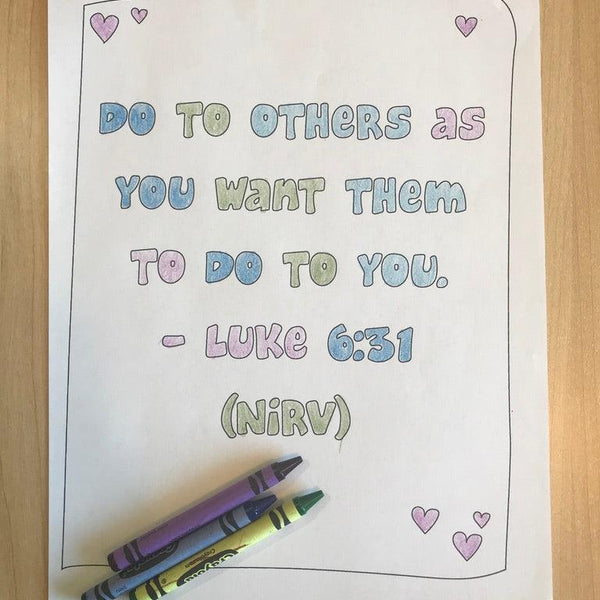 DO TO OTHERS as
YOU Want THem
TO DO TO YOU.
- LUKe 6:31
(NiRV)